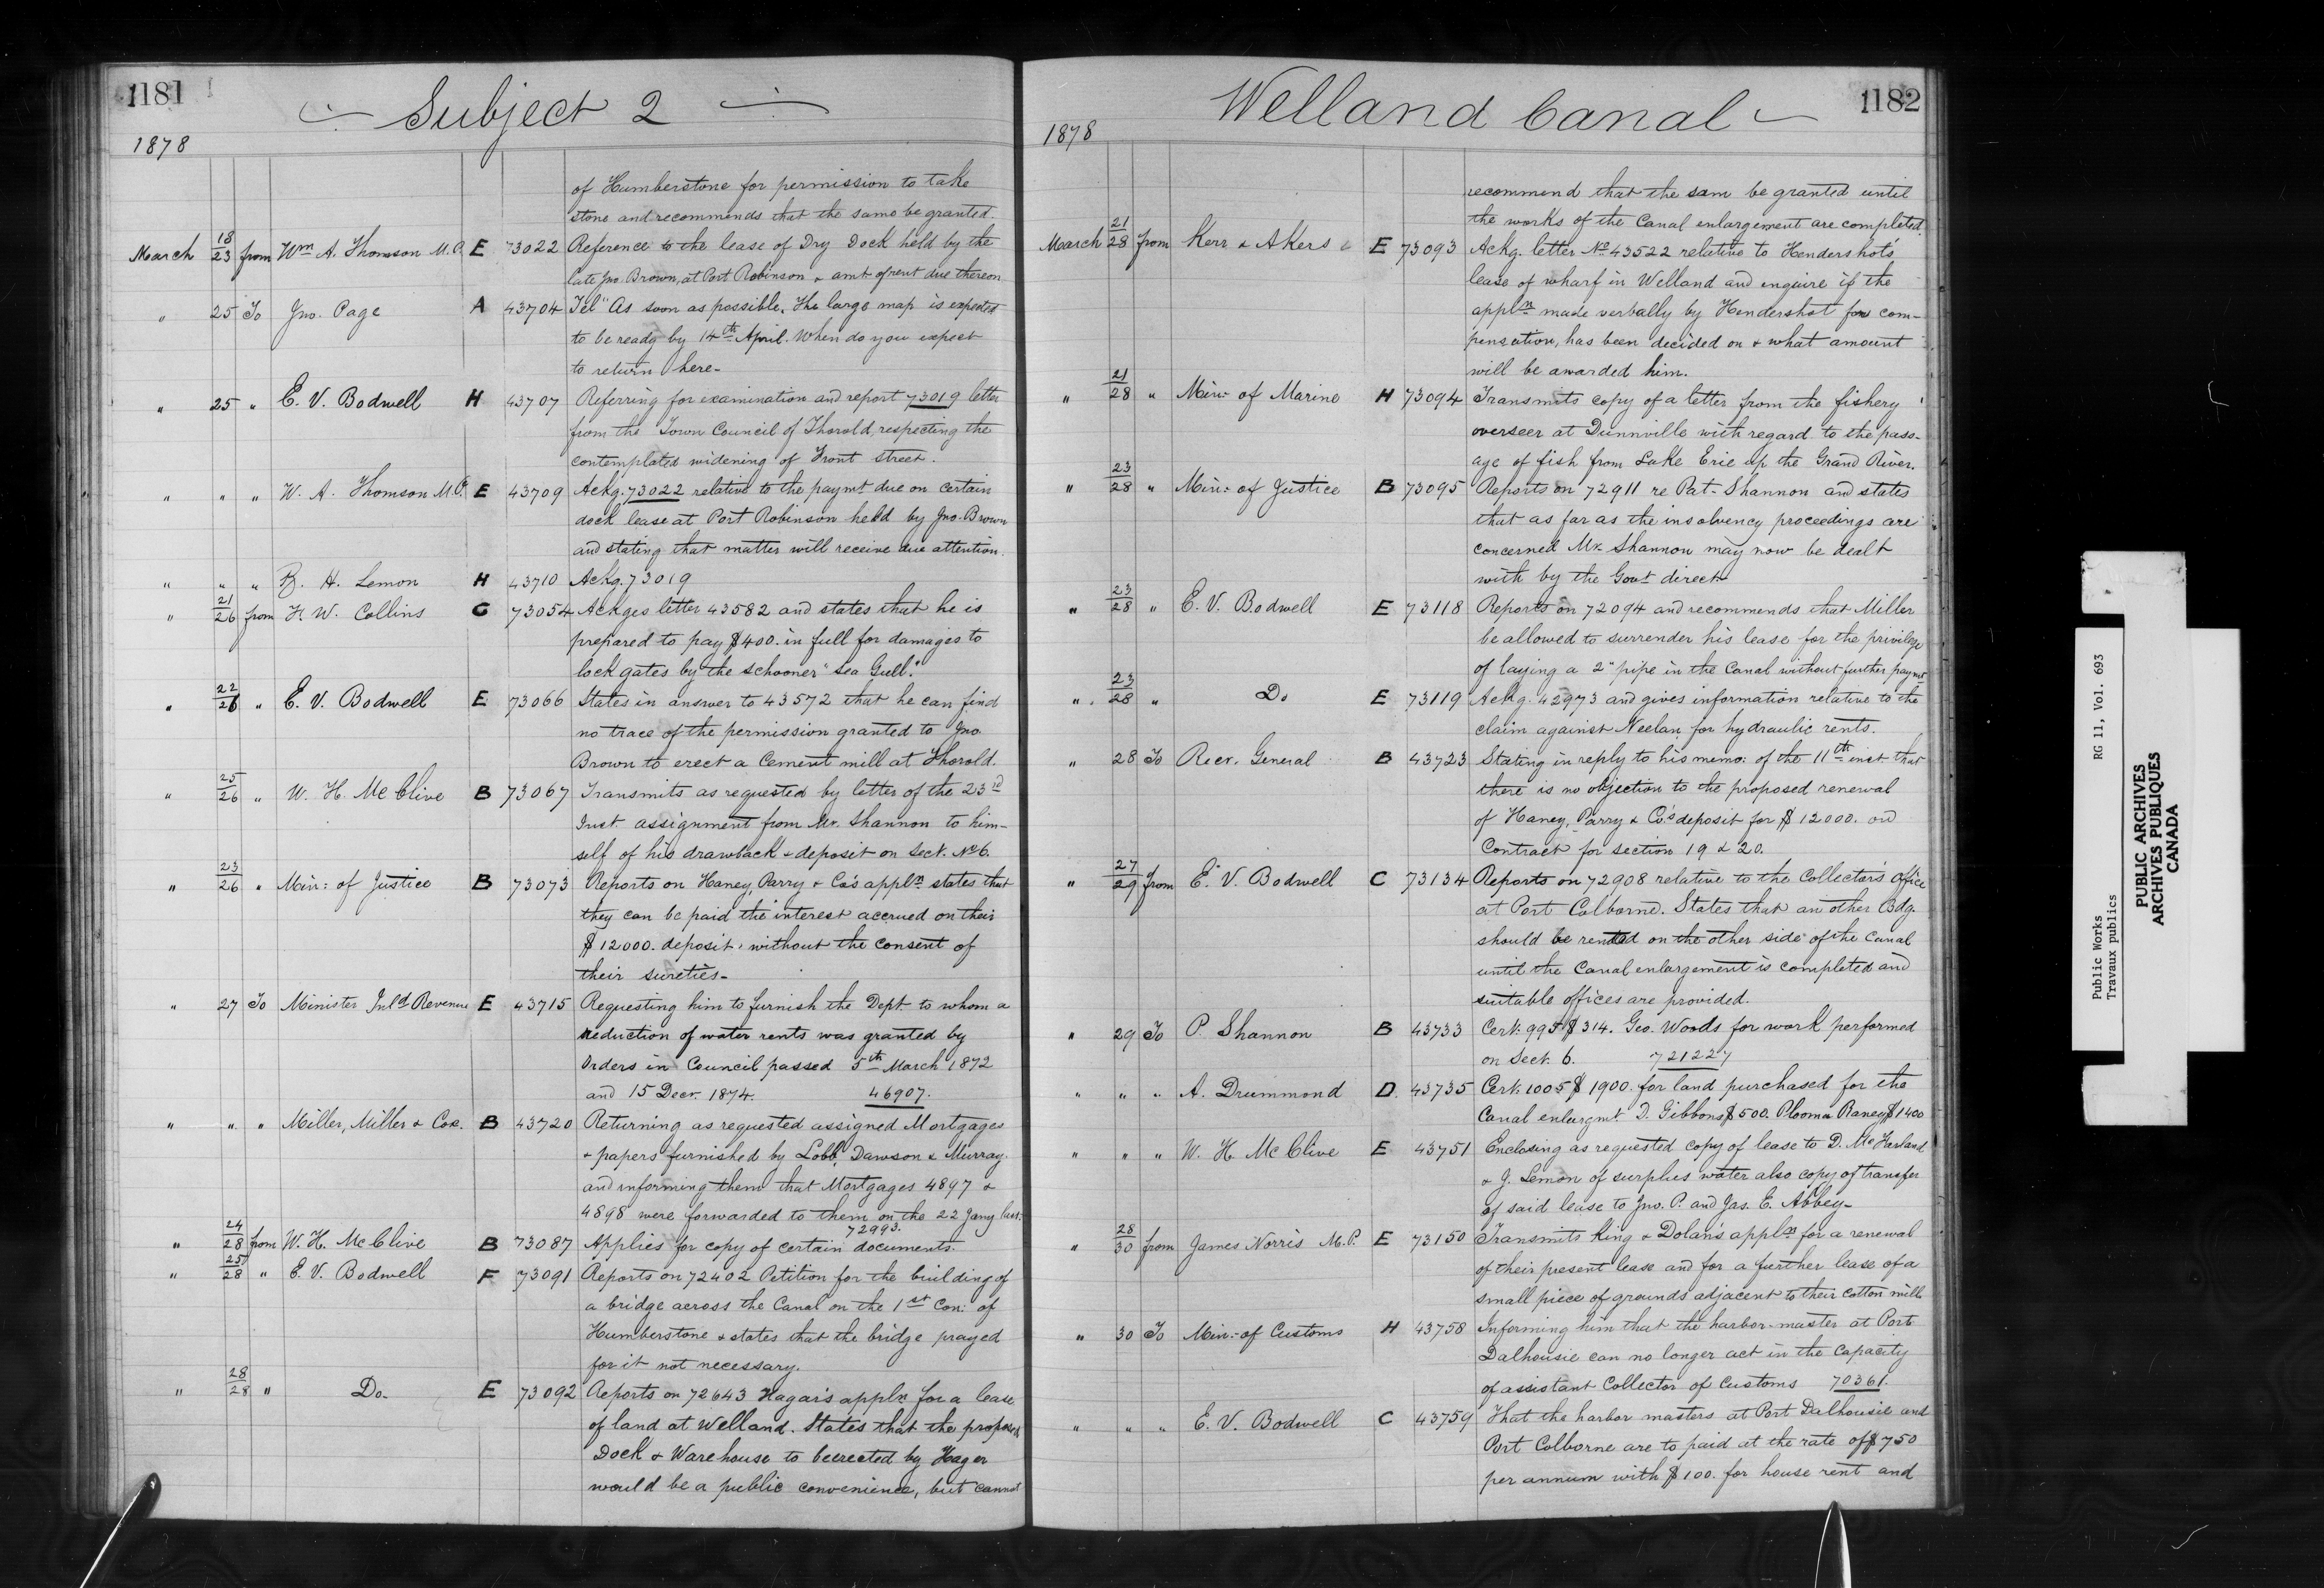 1181
Subject 2
1878
of Humberstone for permission to take
stone and recommends that the same be granted.
March 18/23 from Wm A. Thomson M.P. E 73022 Reference to the lease of Dry Dock held by the
late Jno. Brown, at Port Robinson & amt of rent due thereon
" 25 To Jno. Page A 43704 Tel "As soon as possible. The large map is expected
to be ready by 14th April. When do you expect
to return here-
" 25 " E. V. Bodwell H 43707 Referring for examination and report 73019 letter
from the Town Council of Thorold, respecting the
contemplated widening of Front Street.
" " " W. A. Thomson M.P. E 43709 Ackg. 73022 relative to the paymt due on certain
dock lease at Port Robinson held by Jno. Brown
and stating that matter will receive due attention.
" " " B. H. Lemon H 43710 Ackg. 73019
" 21/26 from F. W. Collins C 73054 Ackges letter 43582 and states that he is
prepared to pay $400. in full for damages to
lock gates by the schooner "Sea Gull".
" 22/26 " E. V. Bodwell E 73066 States in answer to 43572 that he can find
no trace of the permission granted to Jno.
Brown to erect a Cement mill at Thorold.
" 25/26 " W. H. McClive B 73067 Transmits as requested by letter of the 23rd
Inst. assignment from Mr. Shannon to him-
self of his drawback & deposit on Sect. No 6.
" 23/26 " Min: of Justice B 73073 Reports on Haney, Parry & Co's appln states that
they can be paid the interest accrued on their
$12000. deposit, without the consent of
their sureties-
" 27 To Minister Inld Revenue E 43715 Requesting him to furnish the Dept. to whom a
reduction of water rents was granted by
Orders in Council passed 5th March 1872
and 15 Decr. 1874. 46907.
" " " Miller, Miller & Cox. B 43720 Returning as requested assigned Mortgages
& papers furnished by Lobb, Dawson & Murray.
and informing them that Mortgages 4897 &
4898 were forwarded to them on the 22 Jany last.
72993.
" 24/28 from W. H. McClive B 73087 Applies for copy of certain documents.
" 25/28 " E. V. Bodwell F 73091 Reports on 72402 Petition for the building of
a bridge across the Canal on the 1st Con: of
Humberstone & states that the bridge prayed
for it not necessary.
" 28/28 " Do. E 73092 Reports on 72643 Hagar's appln for a lease
of land at Welland. States that the proposed
Dock & Warehouse to be erected by Hager
would be a public convenience, but cannot
Welland Canal
1182
1878
recommend that the sam be granted until
the works of the Canal enlargement are completed.
March 21/28 from Kerr & Akers E 73093 Ackg. letter No 43522 relative to Hendershot's
lease of wharf in Welland and enquire if the
appln made verbally by Hendershot for com-
pensation, has been decided on & what amount
will be awarded him.
" 21/28 " Min: of Marine H 73094 Transmits copy of a letter from the fishery
overseer at Dunnville with regard to the pass-
age of fish from Lake Erie up the Grand River.
" 23/28 " Min: of Justice B 73095 Reports on 72911 re Pat. Shannon and states
that as far as the insolvency proceedings are
concerned Mr. Shannon may now be dealt
with by the Govt direct
" 23/28 " E. V. Bodwell E 73118 Reports on 72094 and recommends that Miller
be allowed to surrender his lease for the privilege
of laying a 2" pipe in the Canal without further paymt
" 23/28 " Do E 73119 Ackg. 42973 and gives information relative to the
claim against Neelan for hydraulic rents.
" 28 To Recr. General B 43723 Stating in reply to his memo: of the 11th inst. that
there is no objection to the proposed renewal
of Haney, Parry & Co.'s deposit for $12000. on
Contract for section 19 & 20.
" 27/29 from E. V. Bodwell C 73134 Reports on 72908 relative to the Collector's Office
at Port Colborne. States that an other Bdg.
should be rented on the other side of the Canal
until the Canal enlargement is completed and
suitable offices are provided.
" 29 To P. Shannon B 43733 Cert. 995 $314. Geo. Woods for work performed
on Sect. 6. 721227
" " " A. Drummond D. 43735 Cert. 1005 $1900. for land purchased for the
Canal enlargmt. D. Gibbons $500. Raney $1400
" " " W. H. McClive E 43751 Enclosing as requested copy of lease to D.
& J. Lemon of surplus water also copy of transfer
of said lease to Jno. P. and Jas. E. Abbey-
" 28/30 from James Norris M.P. E 73150 Transmits King & Dolan's appln for a renewal
of their present lease and for a further lease of a
small piece of grounds adjacent to their cotton mill
" 30 To Min: of Customs H 43758 Informing him that the harbor-master at Port
Dalhousie can no longer act in the capacity
of assistant Collector of Customs 70361.
" " " E. V. Bodwell C 43759 That the harbor masters at Port Dalhousie and
Port Colborne are to paid at the rate of $750
per annum with $100. for house rent and
Public Works RG 11, Vol. 693
Travaux publics
PUBLIC ARCHIVES
ARCHIVES PUBLIQUES
CANADA